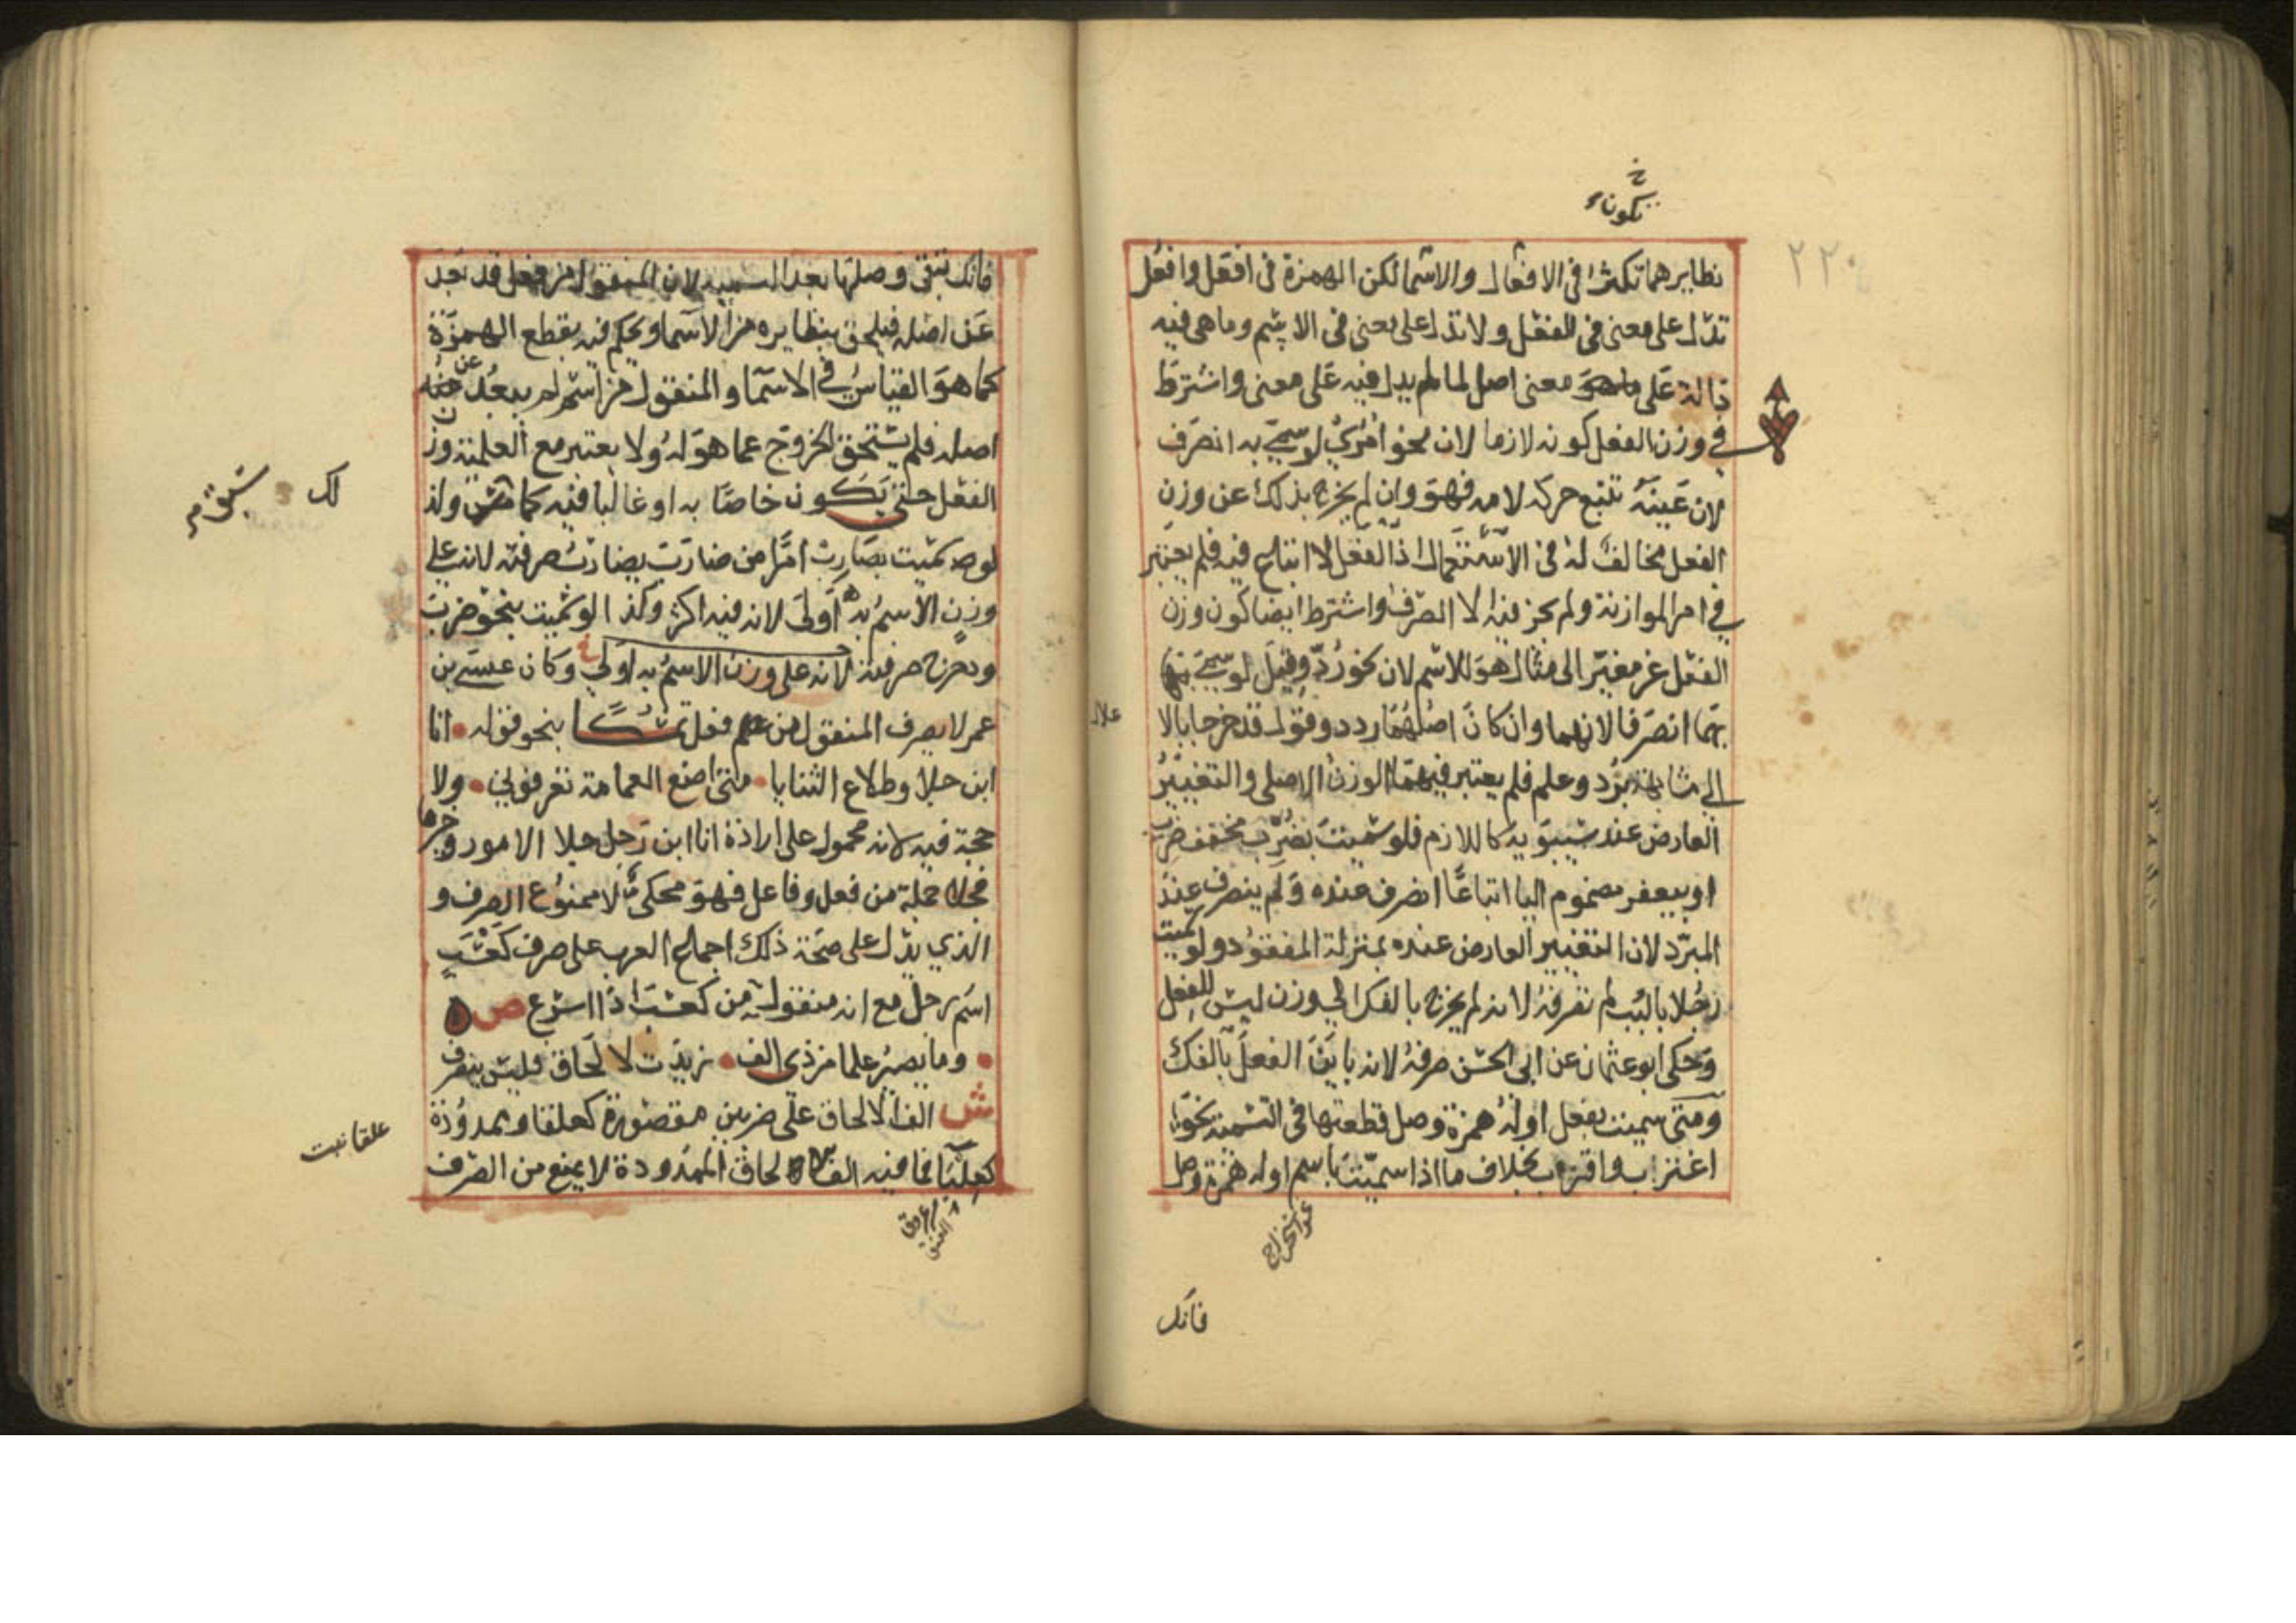 تكونا
٢٢٠
نظايرهما تكثر في الافعال والاسما لكن الهمزة في افعَل وافعُل
تدل على معنى في الفعل ولا تدل على معنى في الاسم وما هي فيه
دالة على معنى اصل لما لم يدل فيه على معنى واشترط
في وزن الفعل كونه لازما لان نحو امرئ لو سمي به انصرف
لان عينه تتبع حركة لامه فهو وان لم يخرج بذلك عن وزن
الفعل مخالف له في الاستعمال اذ الفعل لا اتباع فيه فلم يعتبر
في امر الموازنة ولم يجز فيه الا الصرف واشترط ايضا كون وزن
الفعل غير مغير الى مثال هو للاسم لان نحو رُدّ وقيل لو سمي
بهما انصرفا لانهما وان كان اصلهما ردد وقول قد خرجا بالا
علال
الى مشابهة برد وعلم فلم يعتبر فيهما الوزن الاصلي والتغيير
العارض عند سيبويه كاللازم فلو سميت بضرب مخفف ضرب
او بيعفر مضموم اليا اتباعا انصرف عنده ولم ينصرف عند
المبرد لان التغيير العارض عنده بمنزلة المفقود ولو سميت
رجلا بالبب لم تصرفه لانه لم يخرج بالفك الى وزن ليس للفعل
وحكى ابو عثمان عن ابي الحسن صرفه لانه باين الفعل بالفك
ومتى سميت بفعل اوله همزة وصل قطعتها في التسمية نحو
اغتراب واقتراب بخلاف ما اذا سميت باسم اوله همزة وصل
فانك
فانك تبقي وصلها بعد التسمية لان المنقول من فعل قد بعد
عن اصله فيلحق بنظايره من الاسما ويحكم فيه بقطع الهمزة
كما هو القياس في الاسما والمنقول من اسم لم يبعد عن
اصله فلم يستحق الخروج عما هو له ولا يعتبر مع العلمية وزن
الفعل حتى يكون خاصا به او غالبا فيه كما سبق ولذ
لك
لو سميت بضارب امرا من ضارب يضارب صرفته لانه على
وزن الاسم به اولى لانه فيه اكثر وكذا لو سميت بنحو ضرب
ودحرج صرفته لانه على وزن الاسم به اولى وكان عيسى بن
عمر لا يصرف المنقول من فعل تمسكا بنحو قوله انا
ابن جلا وطلاع الثنايا متى اضع العمامة تعرفوني ولا
حجة فيه لانه محمول على ارادة انا ابن رجل جلا الامور وجربها
فجلا جملة من فعل وفاعل فهو محكي لا ممنوع الصرف و
الذي يدل على صحة ذلك اجماع العرب على صرف كعسب
اسم رجل مع انه منقول من كعسب اذا اسرع ص
وما يصير علما من ذي الف زيدت لالحاق فليس ينصرف
ش الف الالحاق على ضربين مقصورة كعلقا وممدودة
علقا نبت
كعلبا فما فيه الف الالحاق الممدودة لا يمنع من الصرف
عرق
العنق